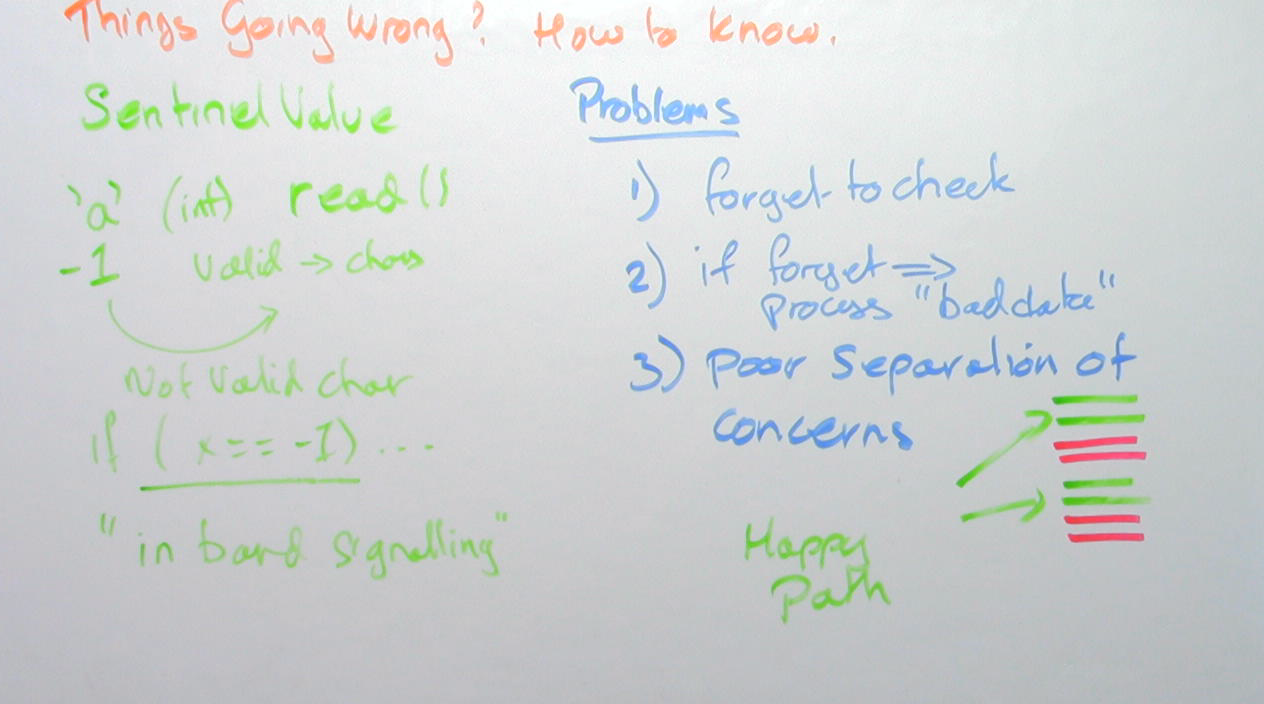 Things Going Wrong? How to know.
Sentinel Value
'a' (int) read()
-1 valid → chars
Not Valid char
if ( x == -1) ...
"in band signalling"
Problems
1) forget to check
2) if forget ⇒
process "bad data"
3) Poor Separation of
concerns
Happy
Path